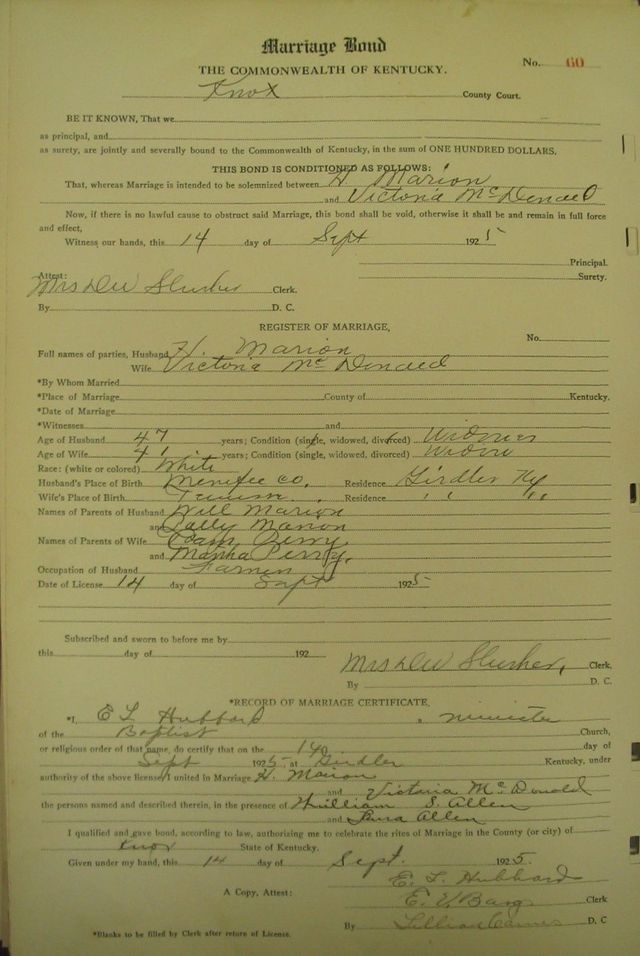 Marriage Bond
No. 60
THE COMMONWEALTH OF KENTUCKY.
Knox County Court.
BE IT KNOWN, That we
as principal, and
as surety, are jointly and severally bound to the Commonwealth of Kentucky, in the sum of ONE HUNDRED DOLLARS.
THIS BOND IS CONDITIONED AS FOLLOWS:
That, whereas Marriage is intended to be solemnized between H. Marion
and Victoria McDonald
Now, if there is no lawful cause to obstruct said Marriage, this bond shall be void, otherwise it shall be and remain in full force
and effect,
Witness our hands, this 14 day of Sept 1925
Principal.
Surety.
Attest:
Mrs D W Slusher Clerk.
By D. C.
REGISTER OF MARRIAGE,
No.
Full names of parties, Husband H. Marion
Wife Victoria McDonald
*By Whom Married
*Place of Marriage County of Kentucky.
*Date of Marriage
*Witnesses and
Age of Husband 47 years; Condition (single, widowed, divorced) Widower
Age of Wife 41 years; Condition (single, widowed, divorced) Widow
Race: (white or colored) White
Husband's Place of Birth Menifee Co. Residence Girdler Ky
Wife's Place of Birth Residence " " "
Names of Parents of Husband Will Marion
and Sally Marion
Names of Parents of Wife Perry
and Martha Perry
Occupation of Husband Farmer
Date of License 14 day of Sept 1925
Subscribed and sworn to before me by
this day of 192
Mrs D W Slusher, Clerk,
By D. C.
*RECORD OF MARRIAGE CERTIFICATE.
*I, E L Hubbard a minister
of the Baptist Church,
or religious order of that name, do certify that on the 14 day of
Sept 1925 at Girdler Kentucky, under
authority of the above license I united in Marriage H. Marion
and Victoria McDonald
the persons named and described therein, in the presence of William S. Allen
and Laura Allen
I qualified and gave bond, according to law, authorizing me to celebrate the rites of Marriage in the County (or city) of
Knox State of Kentucky.
Given under my hand, this 14 day of Sept. 1925.
E. L. Hubbard
A Copy, Attest: E. V. Clerk
By Lillian D. C
*Blanks to be filled by Clerk after return of License.